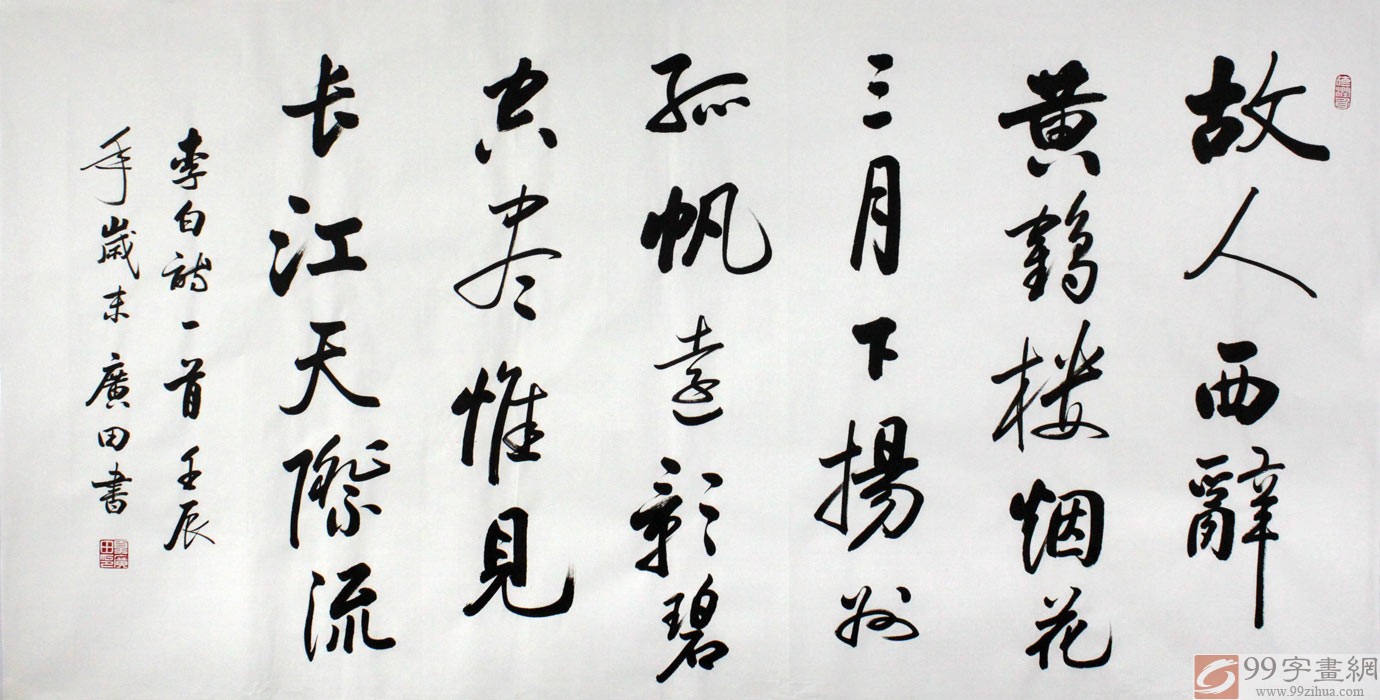 故人西辭
黄鹤楼烟花
三月下揚州
孤帆遠影碧
空尽惟見
长江天際流
李白詩一首壬辰
年歲末廣田書
99字畫網
www.99zihua.com